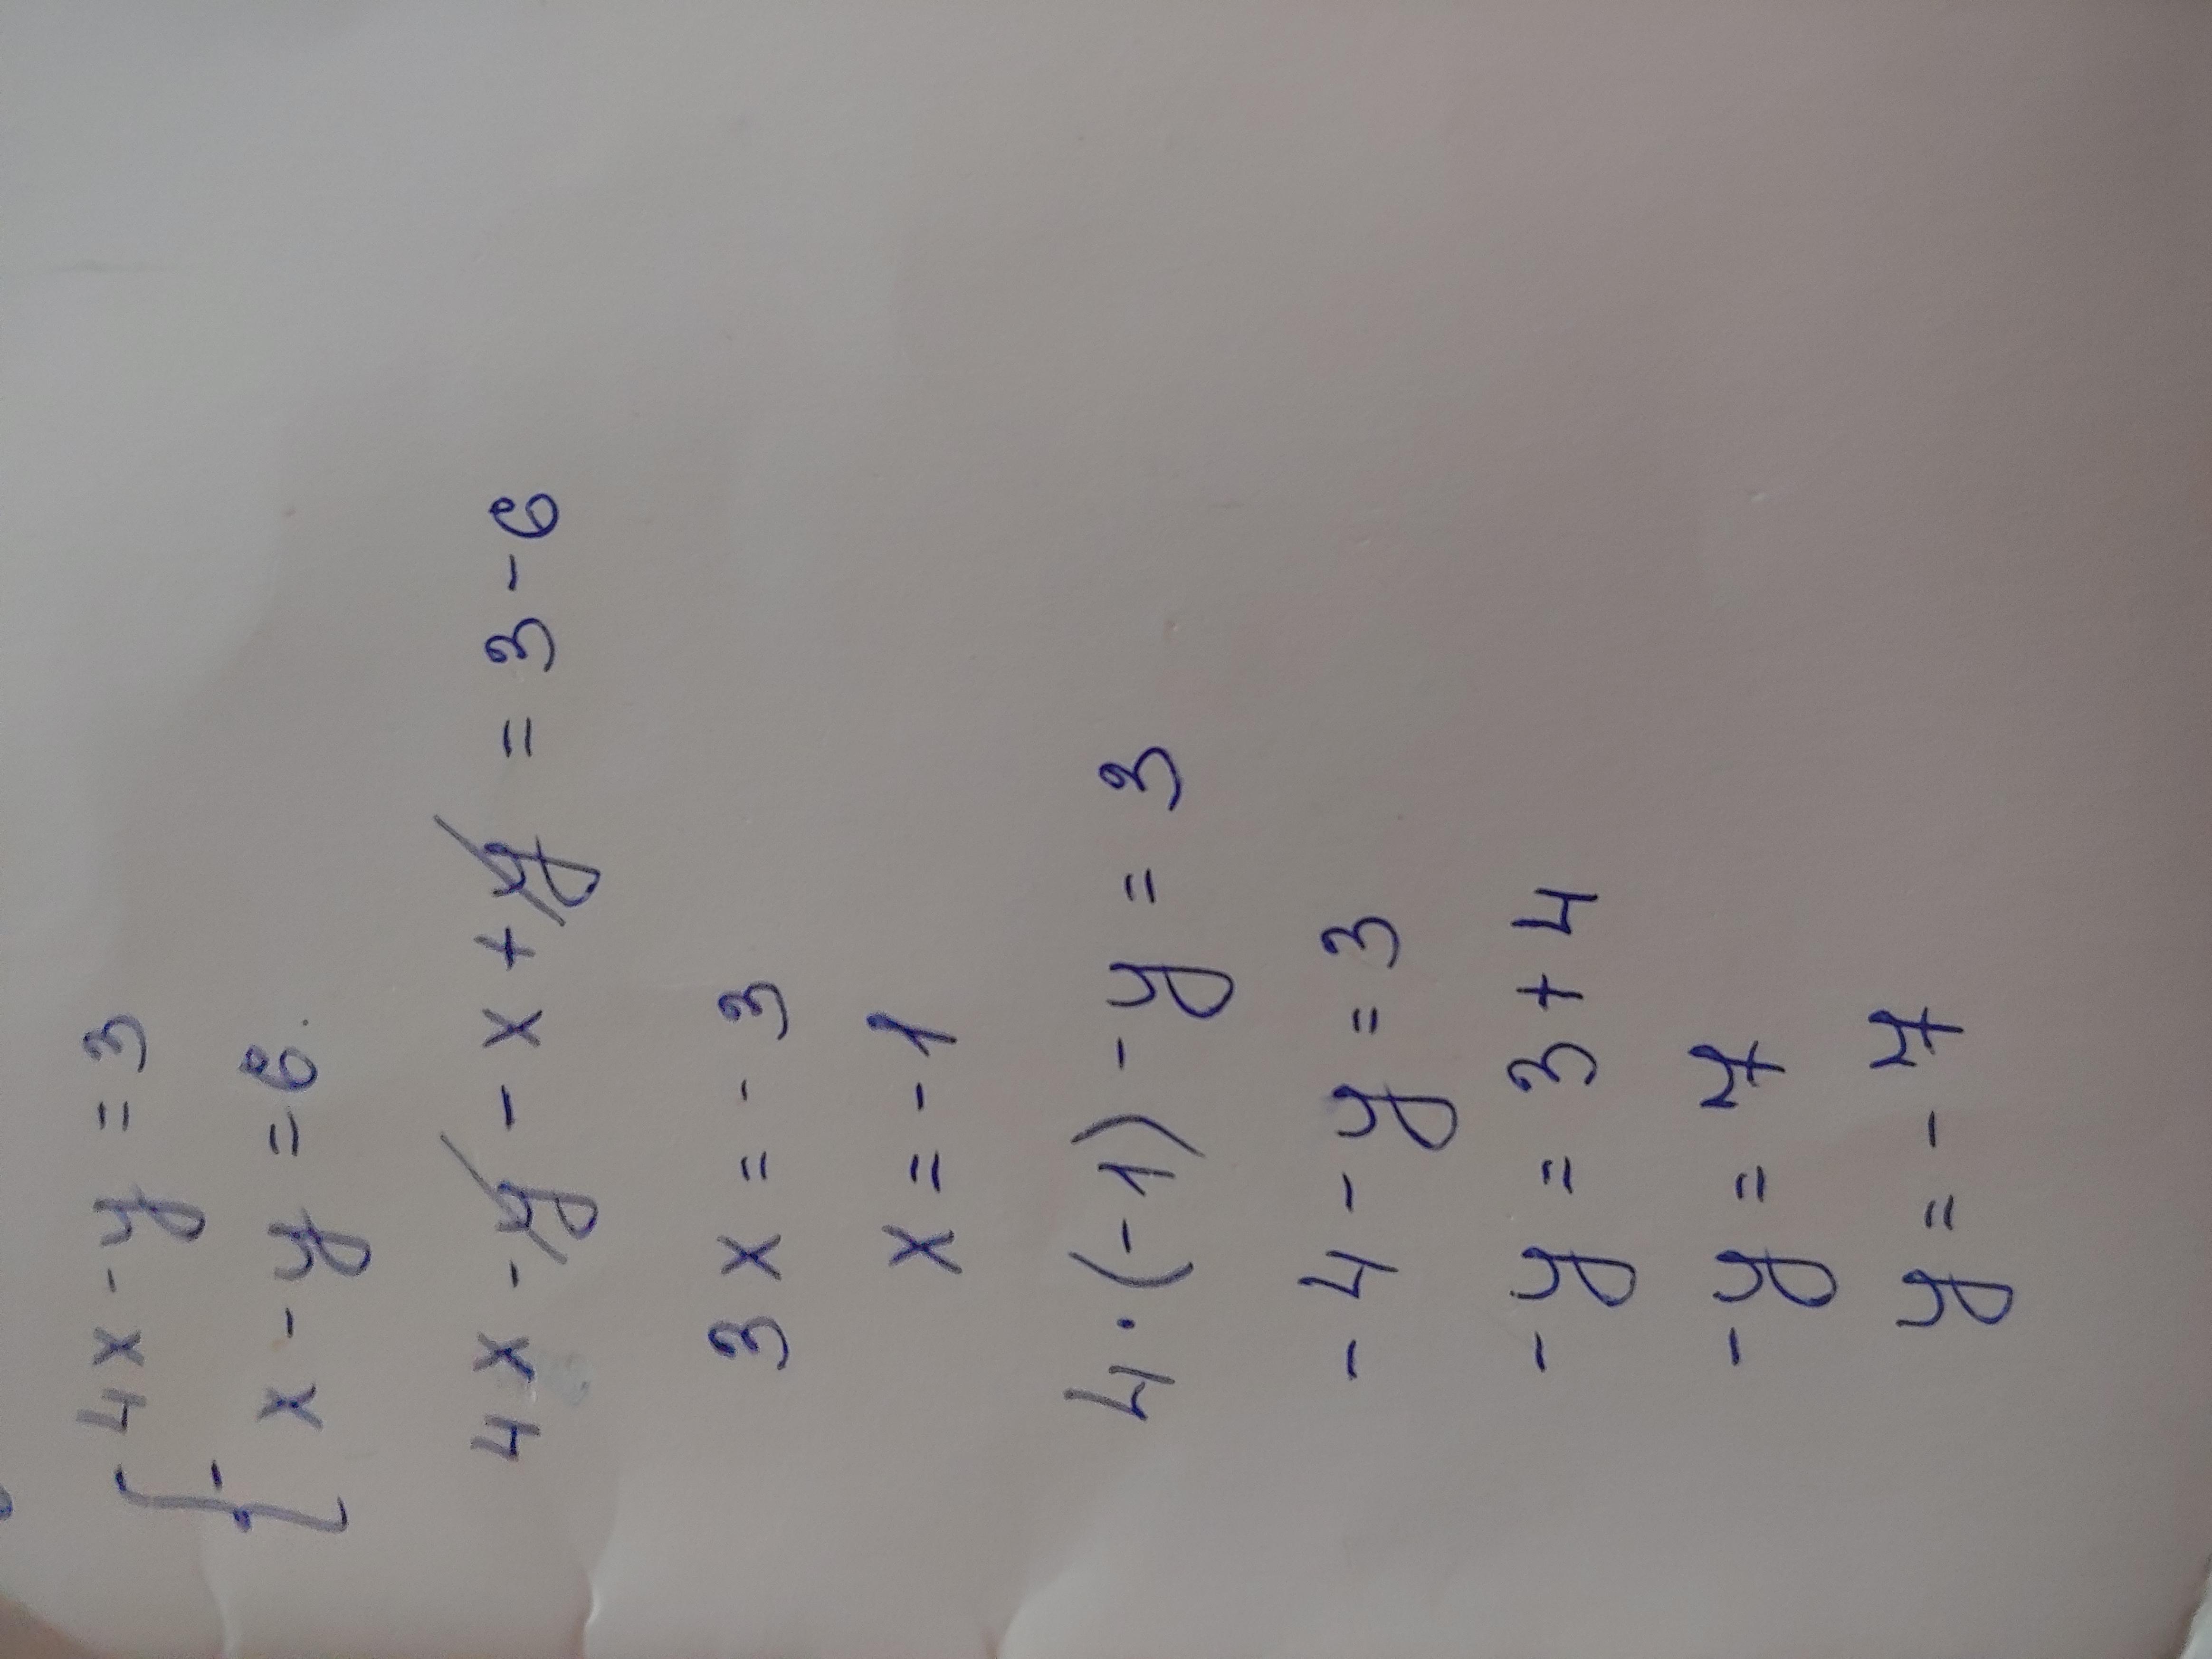 { 4x - y = 3
- x - y = 6.
4x - y - x + y = 3 - 6
3x = - 3
x = - 1
4 · (-1) - y = 3
- 4 - y = 3
- y = 3 + 4
- y = 7
y = - 7